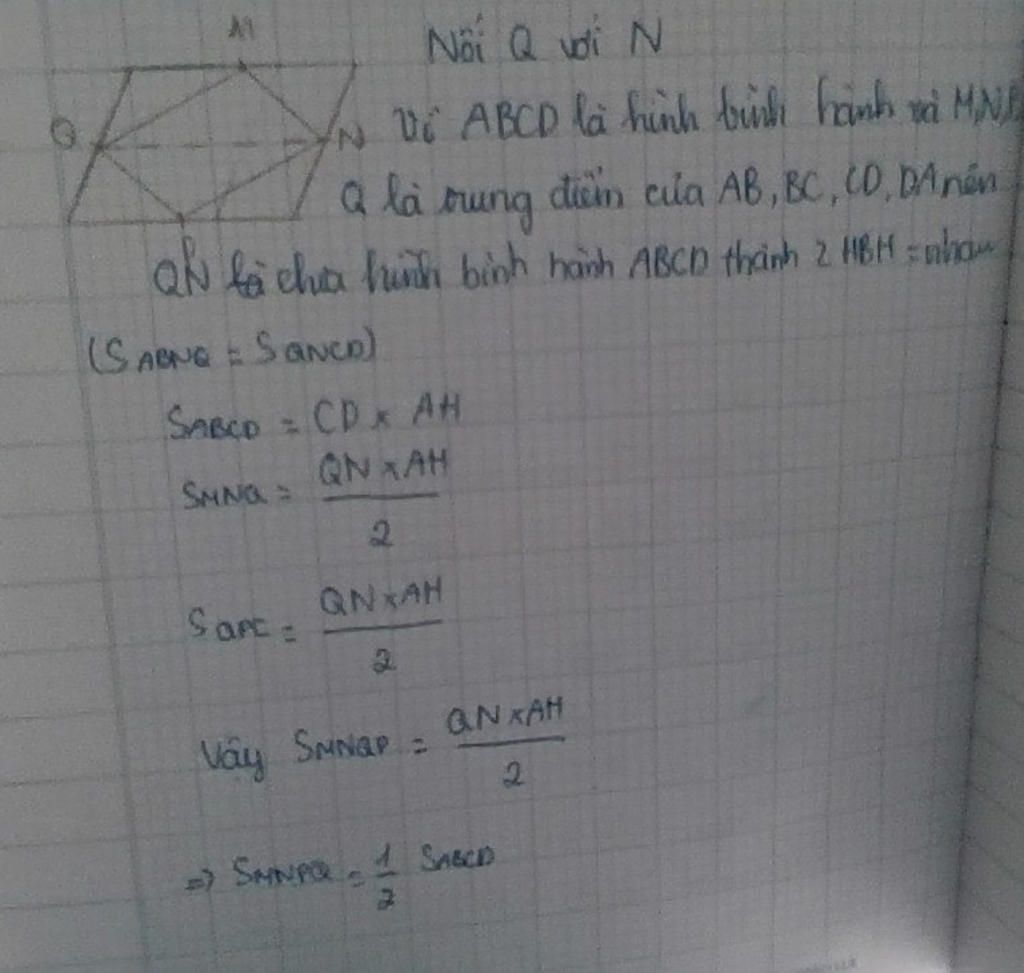 M
Nối Q với N
Q
N
Vì ABCD là hình bình hành và M,N,P
Q là trung điểm của AB, BC, CD, DA nên
QN chia hình bình hành ABCD thành 2 HBH = nhau
(SABNQ = SQNCD)
SABCD = CD x AH
SMNQ = QN x AH
2
SQPC = QN x AH
2
Vậy SMNQP = QN x AH
2
=> SMNPQ = 1/2 SABCD